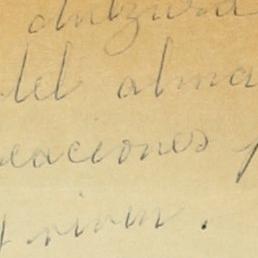 dulzura
del alma
eaciones p
y viven.